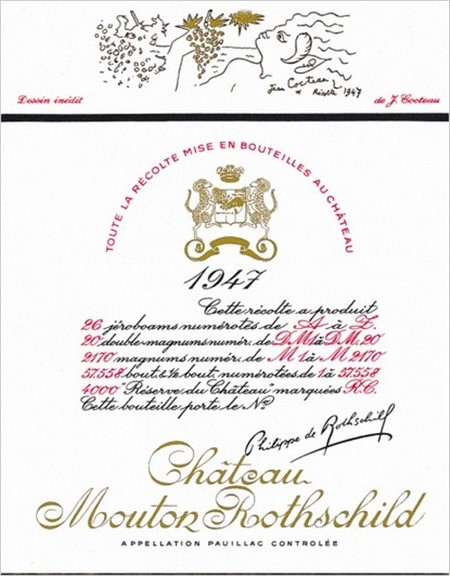 Jean Cocteau
* Récolte 1947
Dessin inédit
de J. Cocteau
TOUTE LA RÉCOLTE MISE EN BOUTEILLES AU CHÂTEAU
1947
Cette récolte a produit
26 jéroboams numérotés de A à Z.
20 double-magnums numér. de D.M.1 à D.M. 20
2170 magnums numér. de M 1 à M 2170
57.558 bout. & ½ bout. numérotées de 1 à 57.558
4000 "Réserve du Château" marquées R.C.
Cette bouteille porte le Nº
Philippe de Rothschild
Château
Mouton Rothschild
APPELLATION PAUILLAC CONTROLÉE